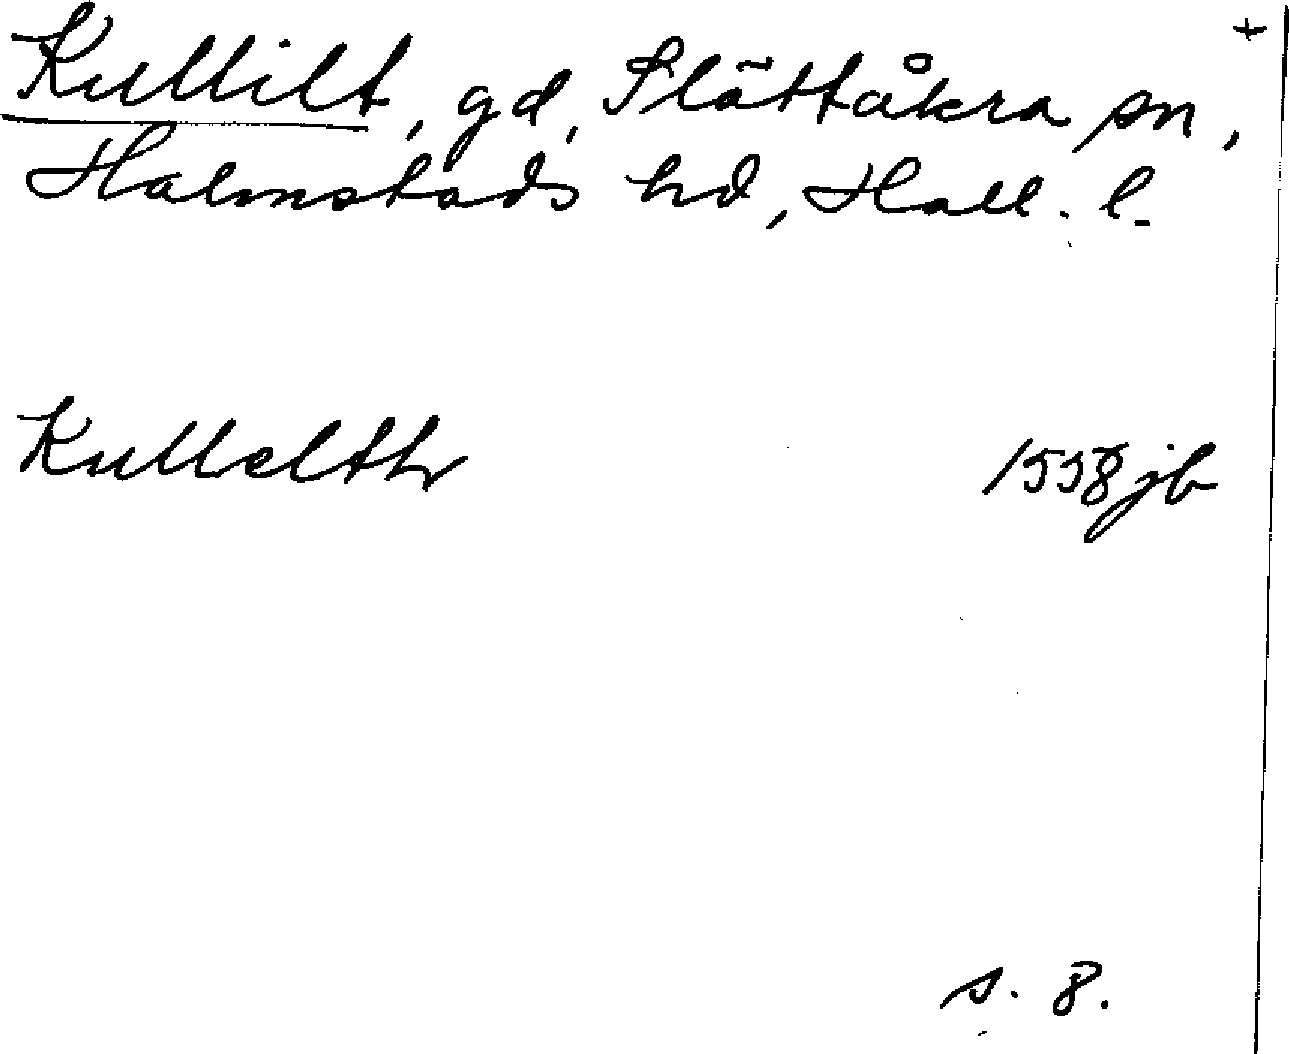 Kullilt, gd, Slättåkra sn, +
Halmstads hd, Hall. l.
Kullelth 1558 jb
s. 8.